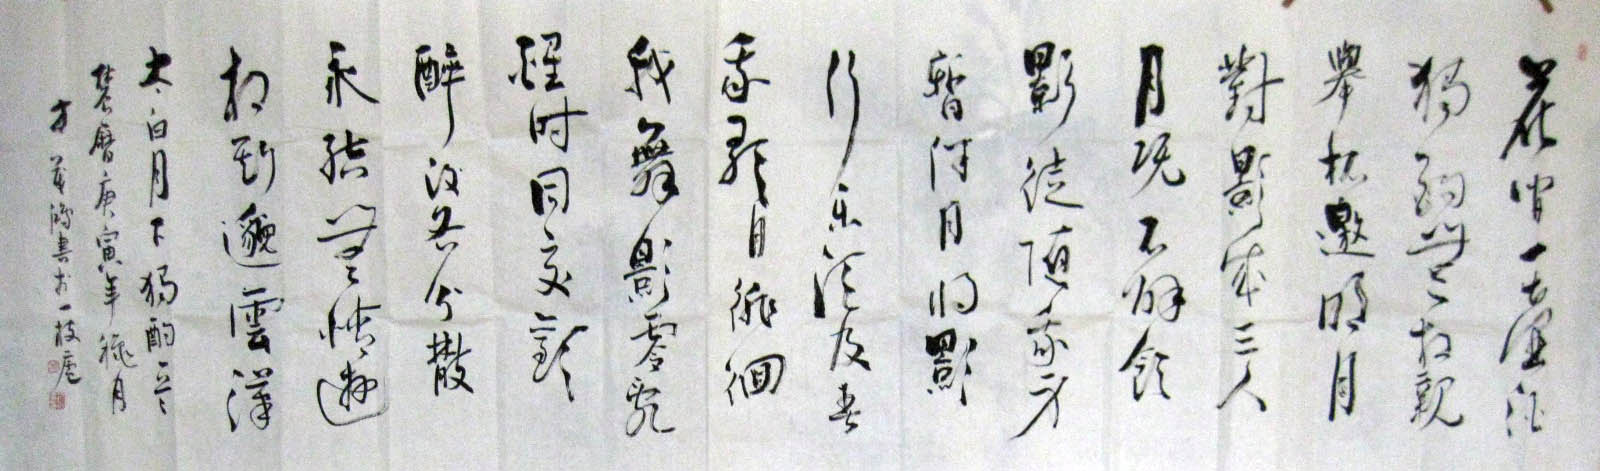 花間一壺酒
獨酌無相親
舉杯邀明月
對影成三人
月既不解飲
影徒隨我身
暫伴月將影
行樂須及春
我歌月徘徊
我舞影零亂
醒時同交歡
醉後各分散
永結無情遊
相期邈雲漢
太白月下獨酌
農曆庚寅年穐月
方 鴻書於一枝廬